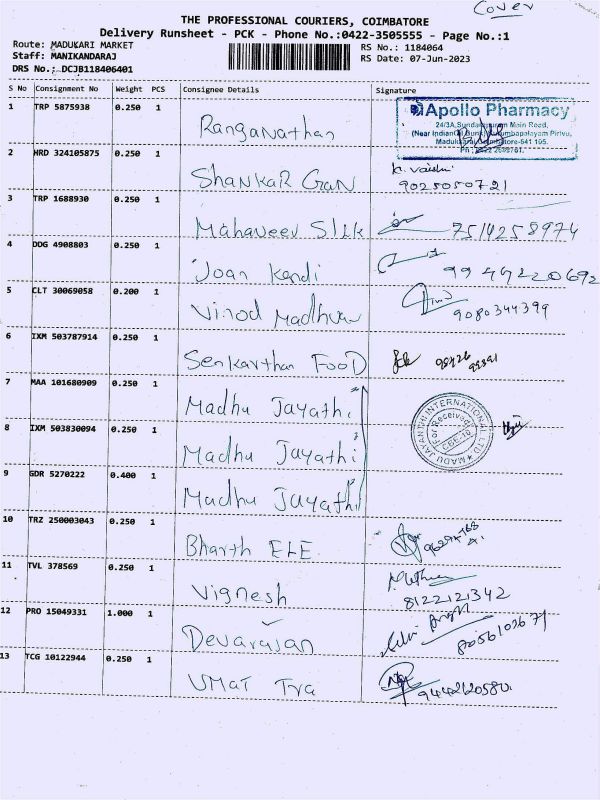 Cover
THE PROFESSIONAL COURIERS, COIMBATORE
Delivery Runsheet - PCK - Phone No.:0422-3505555 - Page No.:1
Route: MADUKARI MARKET RS No.: 1184064
Staff: MANIKANDARAJ RS Date: 07-Jun-2023
DRS No.: DCJB118406401
S No Consignment No Weight PCS Consignee Details Signature
1 TRP 5875938 0.250 1 Ranganathan
Apollo Pharmacy
24/3A, Main Road,
(Near Indian Pirivu,
Madukkarai, Coimbatore-641 105.
2 HRD 324105875 0.250 1 Shankar Gan K. Vaishu
9025050721
3 TRP 1688930 0.250 1 Mahaveer Silk 7510258974
4 DDG 4908803 0.250 1 Joan Kendi 9949220692
5 CLT 30069058 0.200 1 Vinod Madhuvan 9080344399
6 IXM 503787914 0.250 1 Senkarthan Food
7 MAA 101680909 0.250 1 Madhu Jayathi
8 IXM 503830094 0.250 1 Madhu Jayathi
MADU JAYANTHI INTERNATIONAL LTD
For Received
CBE-10
9 GDR 5270222 0.400 1 Madhu Jayathi
10 TRZ 250003043 0.250 1 Bharth ELE
11 TVL 378569 0.250 1 Vignesh
8122121342
12 PRO 15049331 1.000 1 Devarajan
8056102671
13 TCG 10122944 0.250 1 UMAT Tra 9442620580